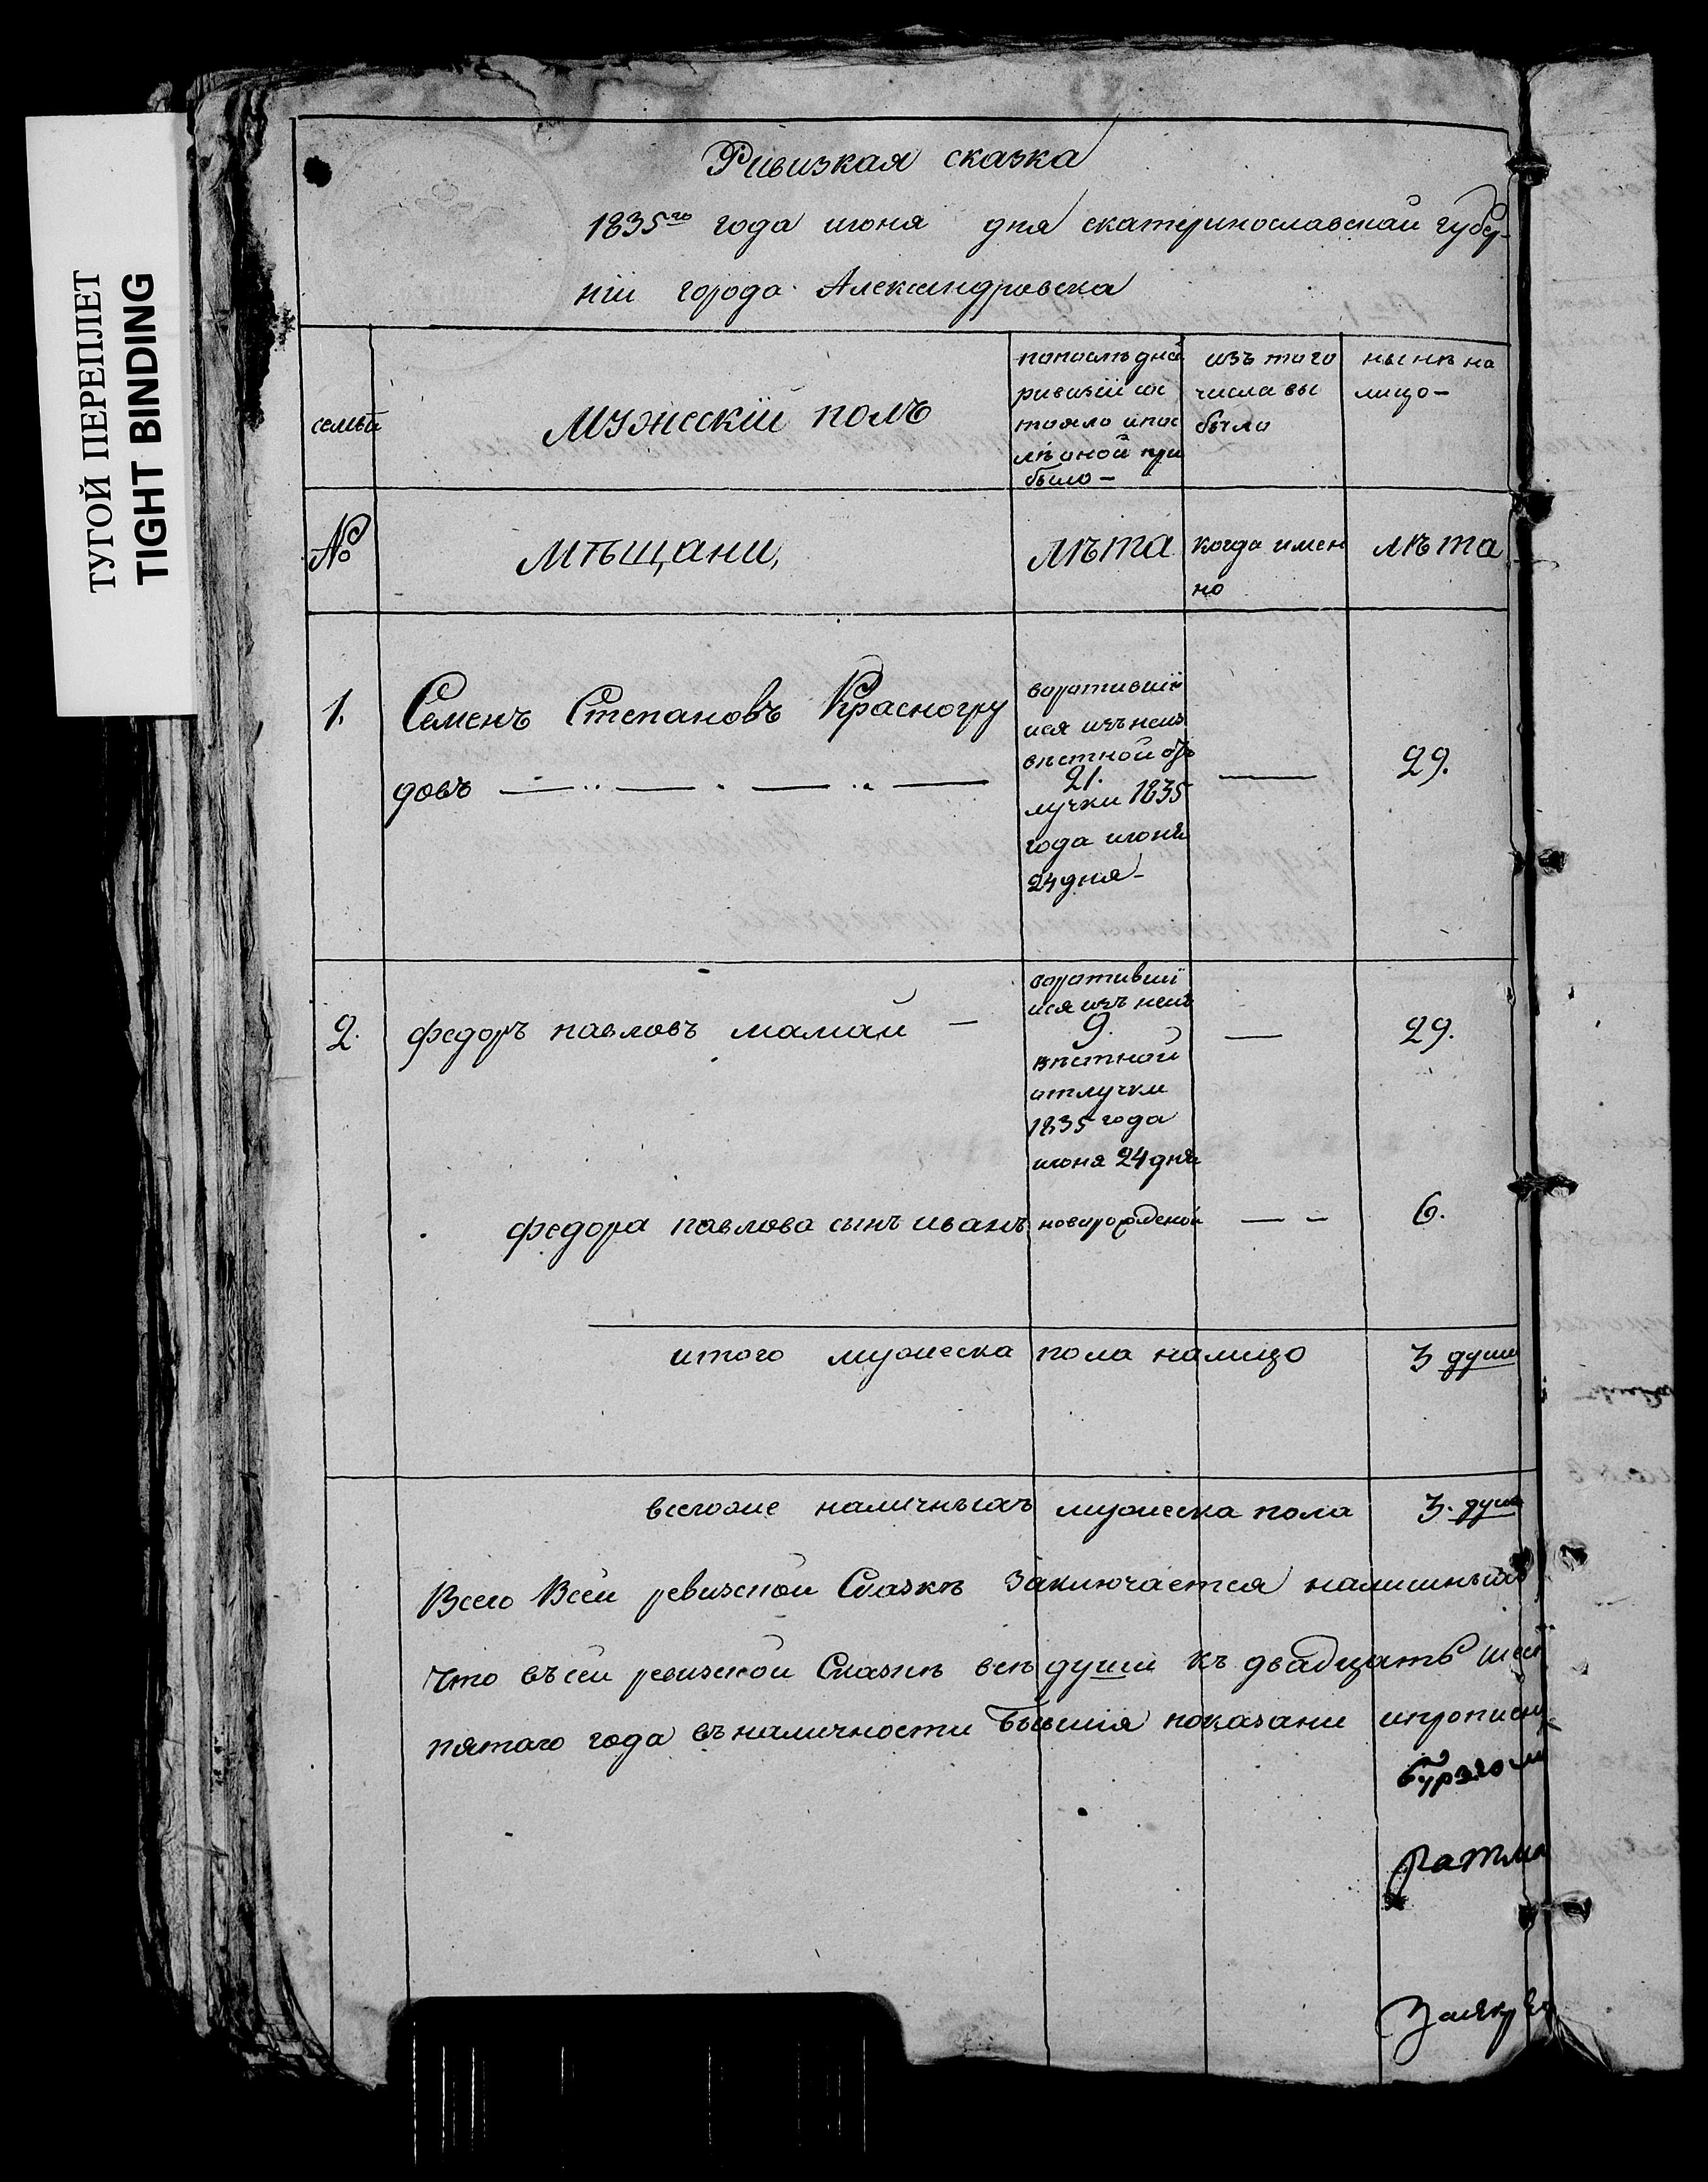 ТУГОЙ ПЕРЕПЛЕТ
TIGHT BINDING
Ривизкая сказка
1835го года июня дня екатеринославскай губер-
ніи города Александровска
семьи
мужескій полъ
попослѣдней
ривизіи сос
тояло ипос
лѣ оной при
было -
изъ того
числа вы
было
нынѣ на
лицо -
№
мѣщани,
лѣта
когда имен
но
лѣта
1.
Семенъ Степановъ Красногру
довъ
воратившій
ися изъ неиз
вѣстной от
21.
лучки 1835
года июня
24 дня -
29.
2.
федоръ павловъ мамай -
воратившіи
ися изъ неиз
9.
вѣстной
отлучки
1835 года
июня 24 дня
29.
федора павлова сынъ иванъ
новарожденой
6.
итого мужеска пола налицо 3 души
всегоже наличныхъ мужеска пола 3. души
Всего Всеи ревизской Сказкѣ Заключается
что въ сеи ревизской Сказкѣ всѣ души къ двадцать
пятаго года въ наличности бывшія показани
Бургом
Ратма